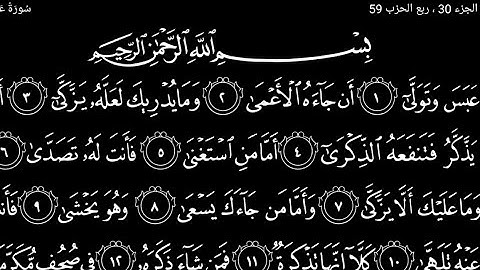 الجزء 30 ، ربع الحزب 59
سُورَةُ عَ
بِسْمِ ٱللَّهِ ٱلرَّحْمَٰنِ ٱلرَّحِيمِ
عَبَسَ وَتَوَلَّىٰٓ ١ أَن جَآءَهُ ٱلْأَعْمَىٰ ٢ وَمَا يُدْرِيكَ لَعَلَّهُۥ يَزَّكَّىٰٓ ٣ أَ
يَذَّكَّرُ فَتَنفَعَهُ ٱلذِّكْرَىٰٓ ٤ أَمَّا مَنِ ٱسْتَغْنَىٰ ٥ فَأَنتَ لَهُۥ تَصَدَّىٰ ٦
وَمَا عَلَيْكَ أَلَّا يَزَّكَّىٰ ٧ وَأَمَّا مَن جَآءَكَ يَسْعَىٰ ٨ وَهُوَ يَخْشَىٰ ٩ فَأَنتَ
عَنْهُ تَلَهَّىٰ ١٠ كَلَّآ إِنَّهَا تَذْكِرَةٌ ١١ فَمَن شَآءَ ذَكَرَهُۥ ١٢ فِى صُحُفٍ مُّكَرَّمَ